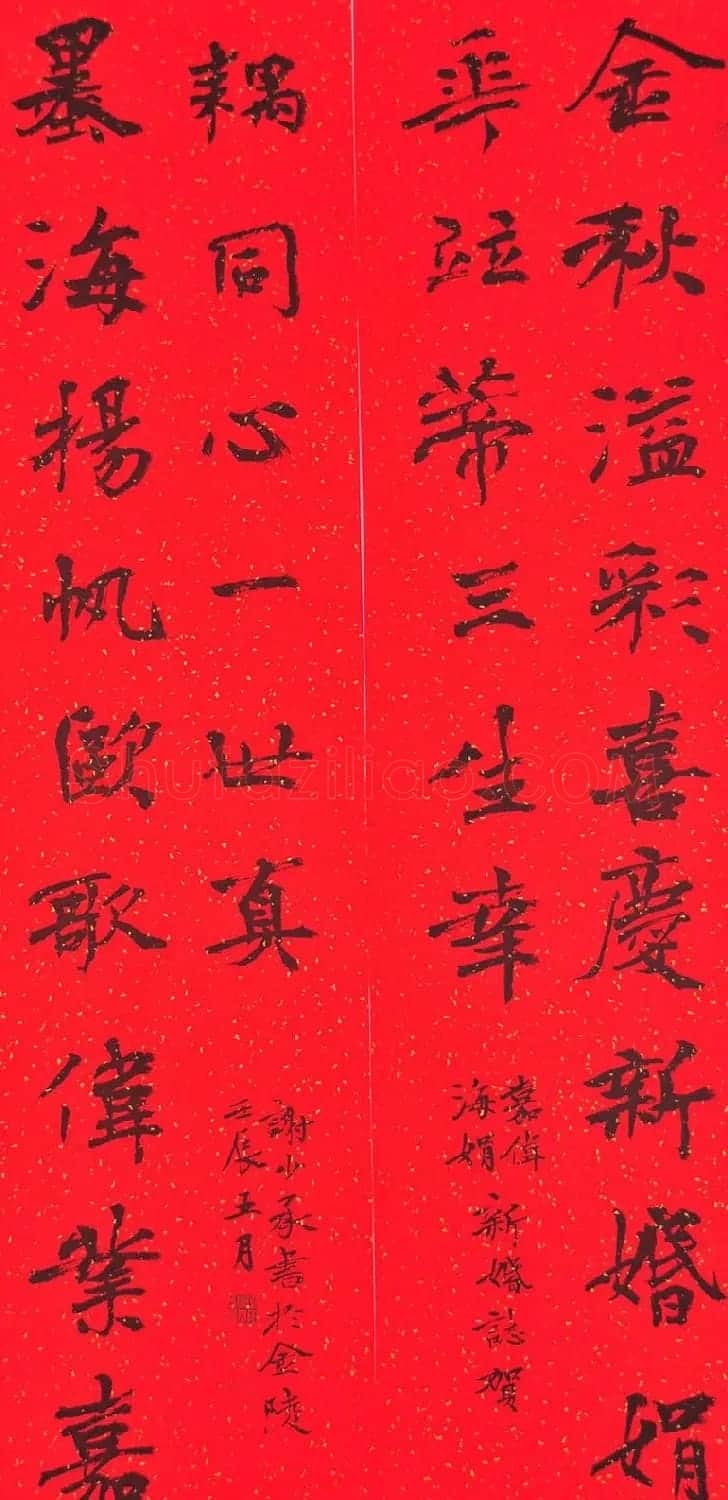 金秋溢彩喜慶新婚娟
華竝蒂三生幸
嘉偉
海娟
新婚誌賀
墨海揚帆歐歌偉業嘉
耦同心一世真
謝少承書於金陵
壬辰五月
shufaziliao.COM